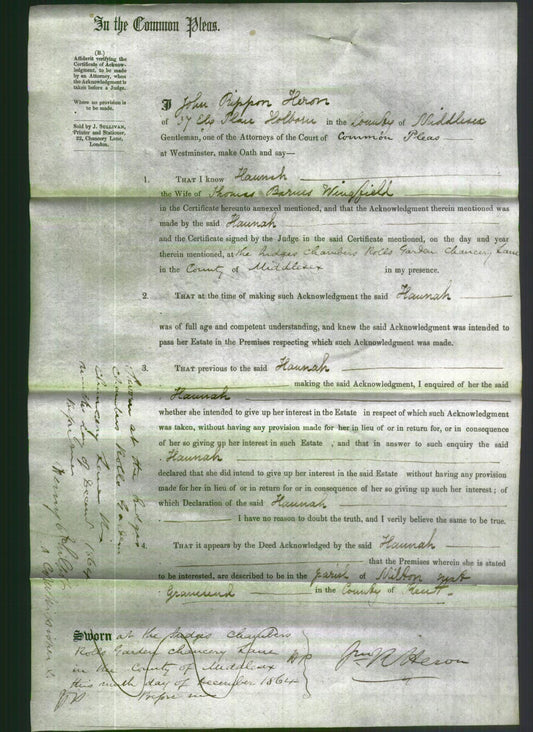 In the Common Pleas.
(B.)
Affidavit verifying the
Certificate of Acknow-
ledgment, to be made
by an Attorney, when
the Acknowledgment is
taken before a Judge.
Where no provision is
to be made.
Sold by J. SULLIVAN,
Printer and Stationer,
22, Chancery Lane,
London.
I John Rippon Heron
of 37 Ely Place Holborn in the County of Middlesex
Gentleman, one of the Attorneys of the Court of Common Pleas
at Westminster, make Oath and say—
1. THAT I know Hannah
the Wife of Thomas Barnes Wingfield
in the Certificate hereunto annexed mentioned, and that the Acknowledgment therein mentioned was
made by the said Hannah
and the Certificate signed by the Judge in the said Certificate mentioned, on the day and year
therein mentioned, at the Judges Chambers Rolls Garden Chancery Lane
in the County of Middlesex in my presence.
2. THAT at the time of making such Acknowledgment the said Hannah
was of full age and competent understanding, and knew the said Acknowledgment was intended to
pass her Estate in the Premises respecting which such Acknowledgment was made.
3. THAT previous to the said Hannah
making the said Acknowledgment, I enquired of her the said
Hannah
whether she intended to give up her interest in the Estate in respect of which such Acknowledgment
was taken, without having any provision made for her in lieu of or in return for, or in consequence
of her so giving up her interest in such Estate , and that in answer to such enquiry the said
Hannah
declared that she did intend to give up her interest in the said Estate without having any provision
made for her in lieu of or in return for or in consequence of her so giving up such her interest; of
which Declaration of the said Hannah
I have no reason to doubt the truth, and I verily believe the same to be true.
4. THAT it appears by the Deed Acknowledged by the said Hannah
that the Premises wherein she is stated
to be interested, are described to be in the parish of Milton next
Gravesend in the County of Kent.
Sworn at the Judges Chambers
Rolls Garden Chancery Lane
in the County of Middlesex
this ninth day of December 1864
Before me
Jno R Heron
Sworn at the Judges
Chambers Rolls Garden
Chancery Lane this
ninth day of December 1864
Before me